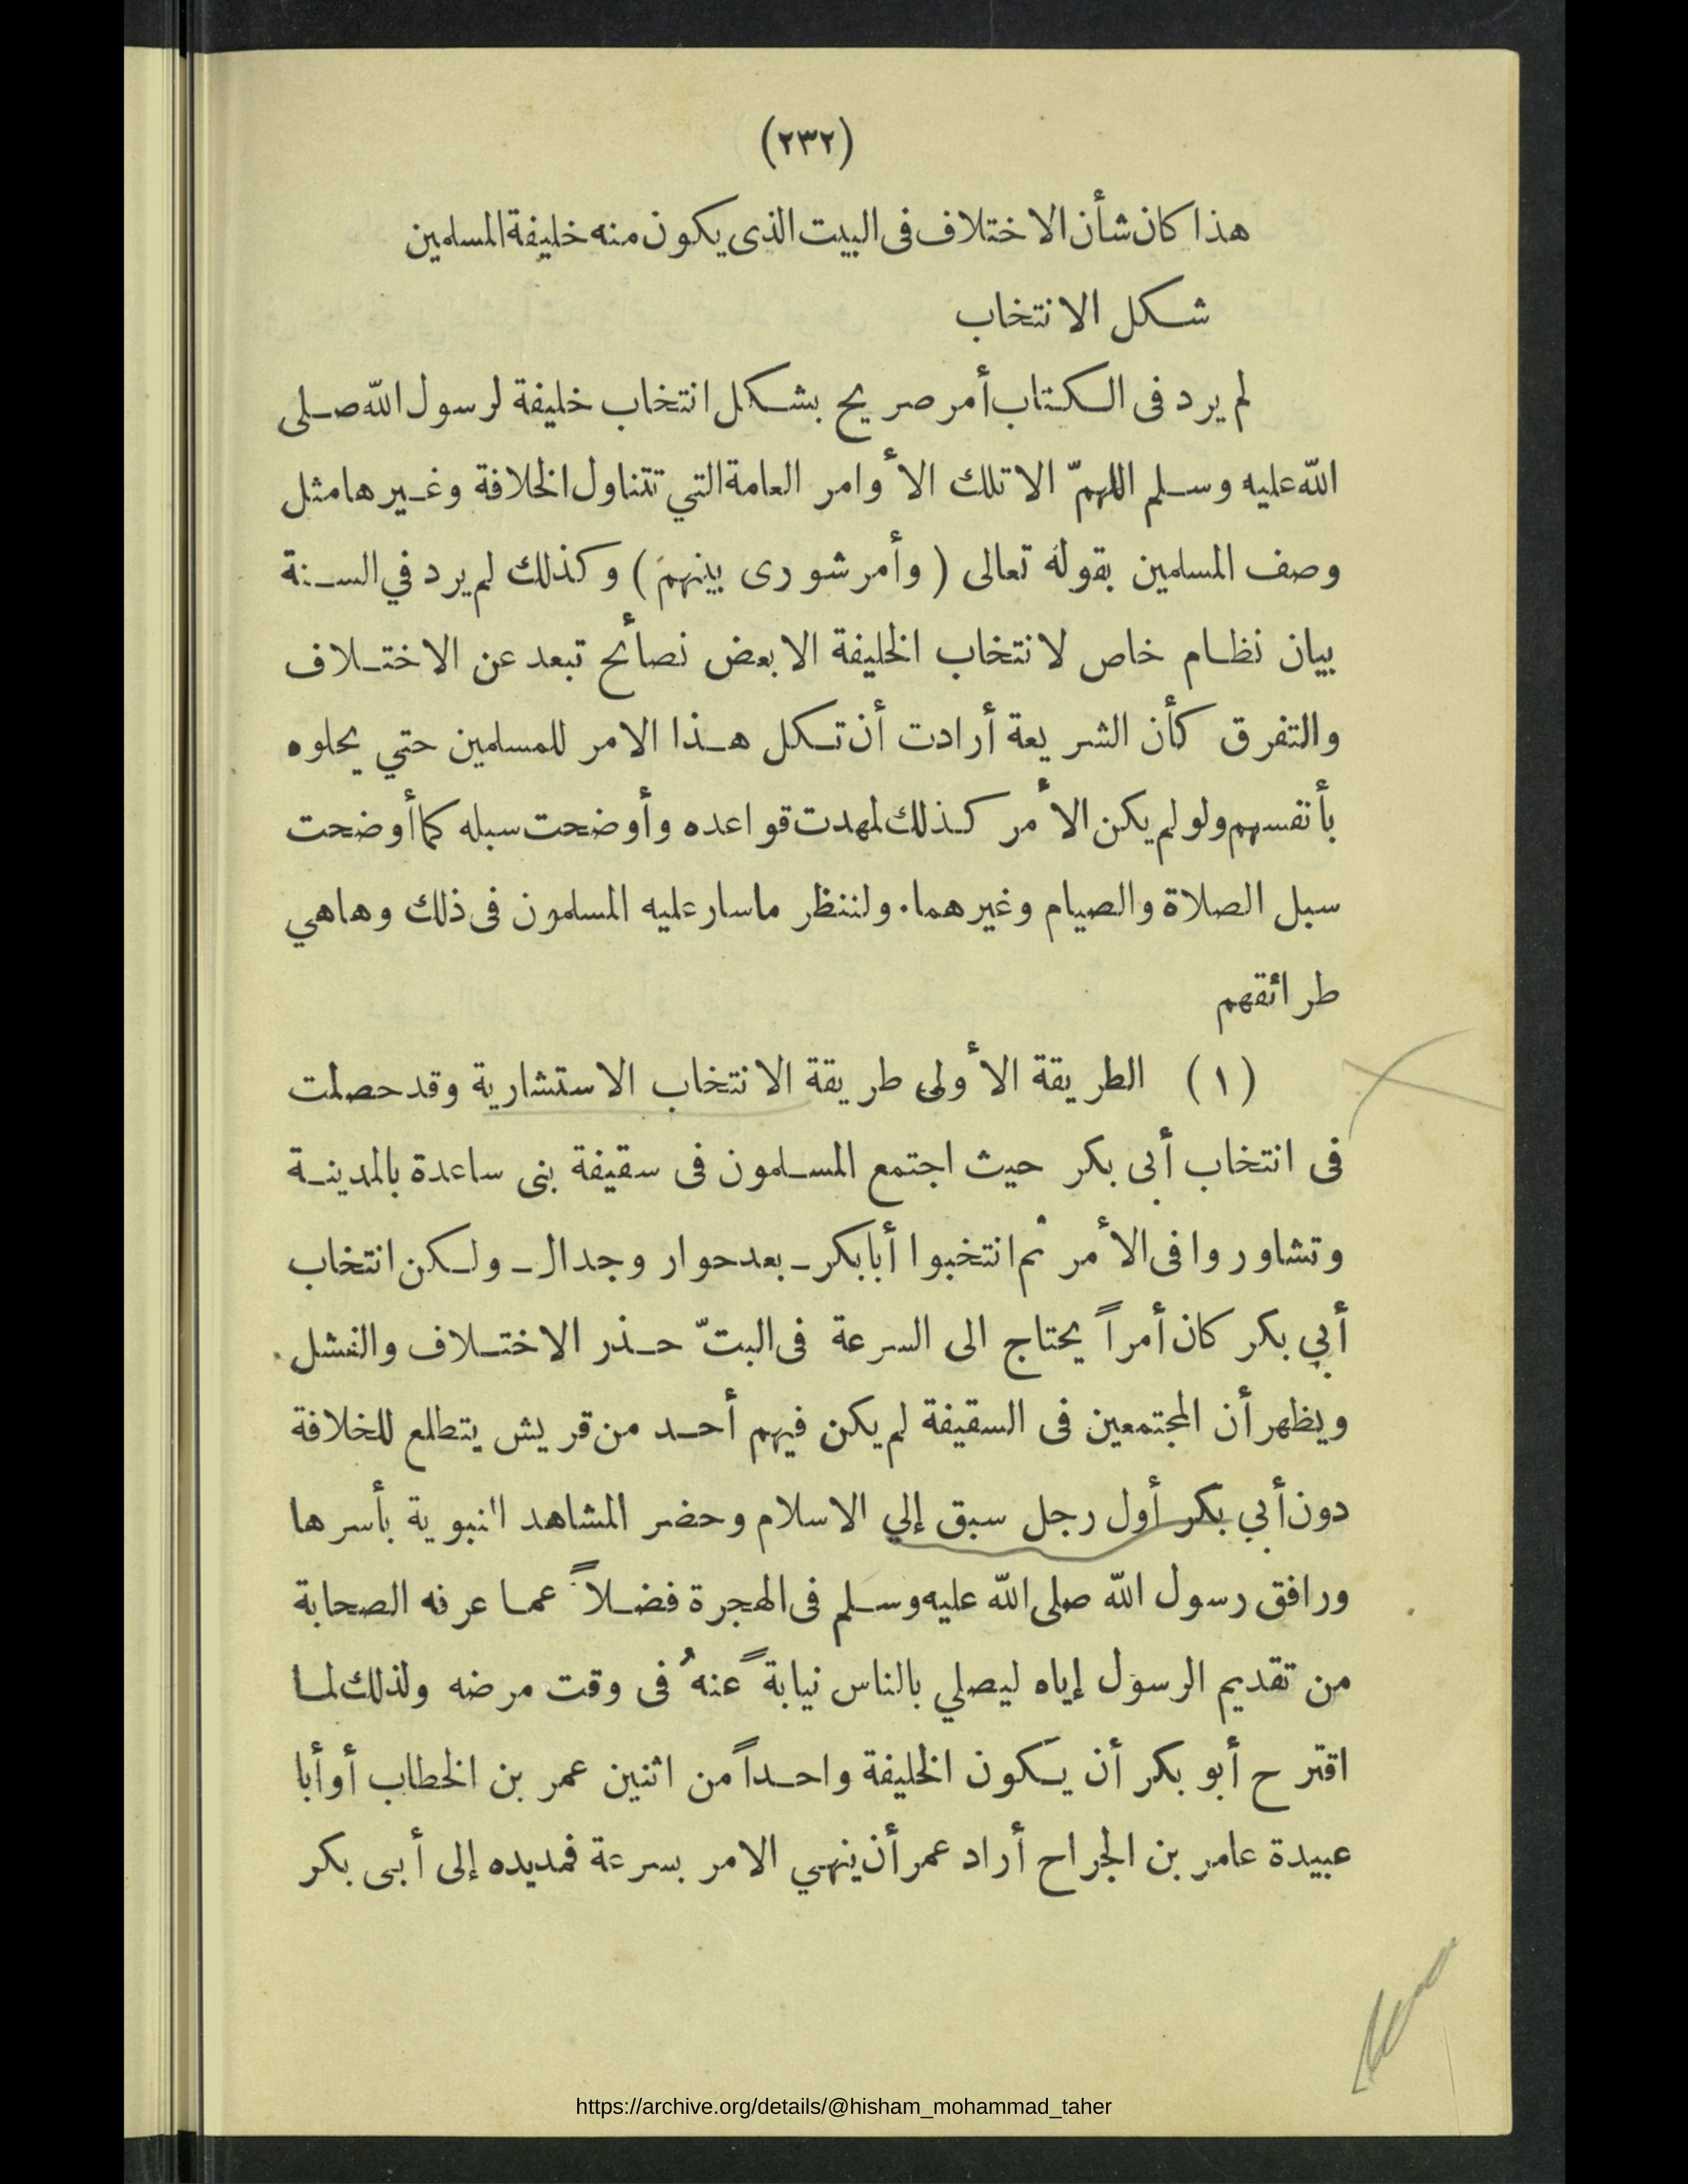 (٢٣٢)
هذا كان شأن الاختلاف فى البيت الذى يكون منه خليفة المسلمين
شكل الانتخاب
لم يرد فى الكتاب أمر صريح بشكل انتخاب خليفة لرسول اللّه صلى
اللّه عليه وسلم اللهمّ الا تلك الأوامر العامة التي تتناول الخلافة وغيرها مثل
وصف المسلمين بقوله تعالى ( وأمر شورى بينهم ) وكذلك لم يرد في السنة
بيان نظام خاص لانتخاب الخليفة الا بعض نصائح تبعد عن الاختلاف
والتفرق كأن الشريعة أرادت أن تكل هذا الامر للمسلمين حتي يحلوه
بأنفسهم ولو لم يكن الأمر كذلك لمهدت قواعده وأوضحت سبله كما أوضحت
سبل الصلاة والصيام وغيرهما. ولننظر ماسار عليه المسلمون فى ذلك وهاهي
طرائقهم
(١) الطريقة الأولى طريقة الانتخاب الاستشارية وقد حصلت
فى انتخاب أبى بكر حيث اجتمع المسلمون فى سقيفة بنى ساعدة بالمدينة
وتشاوروا فى الأمر ثم انتخبوا أبا بكر ـ بعد حوار وجدال ـ ولكن انتخاب
أبي بكر كان أمراً يحتاج الى السرعة فى البتّ حذر الاختلاف والفشل.
ويظهر أن المجتمعين فى السقيفة لم يكن فيهم أحد من قريش يتطلع للخلافة
دون أبي بكر أول رجل سبق إلي الاسلام وحضر المشاهد النبوية بأسرها
ورافق رسول اللّه صلى اللّه عليه وسلم فى الهجرة فضلاً عما عرفه الصحابة
من تقديم الرسول إياه ليصلي بالناس نيابةً عنهُ فى وقت مرضه ولذلك لما
اقترح أبو بكر أن يكون الخليفة واحداً من اثنين عمر بن الخطاب أو أبا
عبيدة عامر بن الجراح أراد عمر أن ينهي الامر بسرعة فمد يده إلى أبى بكر
https://archive.org/details/@hisham_mohammad_taher